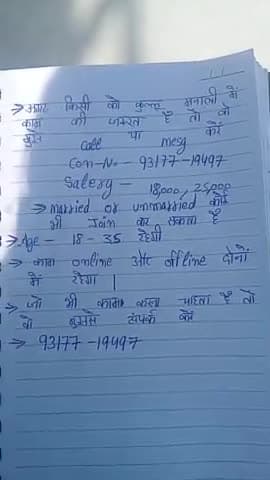 → अगर किसी को कुल्लू मनाली में
काम की जरूरत है तो वो
मुझे Call या mesg करें
Con-No - 93177-19497
Salery - 18,000, 25,000
→ married or unmarried कोई
भी Join कर सकता है
→ Age - 18 - 35 रहेगी
→ काम online और offline दोनों
में रहेगा |
→ जो भी काम करना चाहता है तो
वो मुझसे संपर्क करें
→ 93177-19497